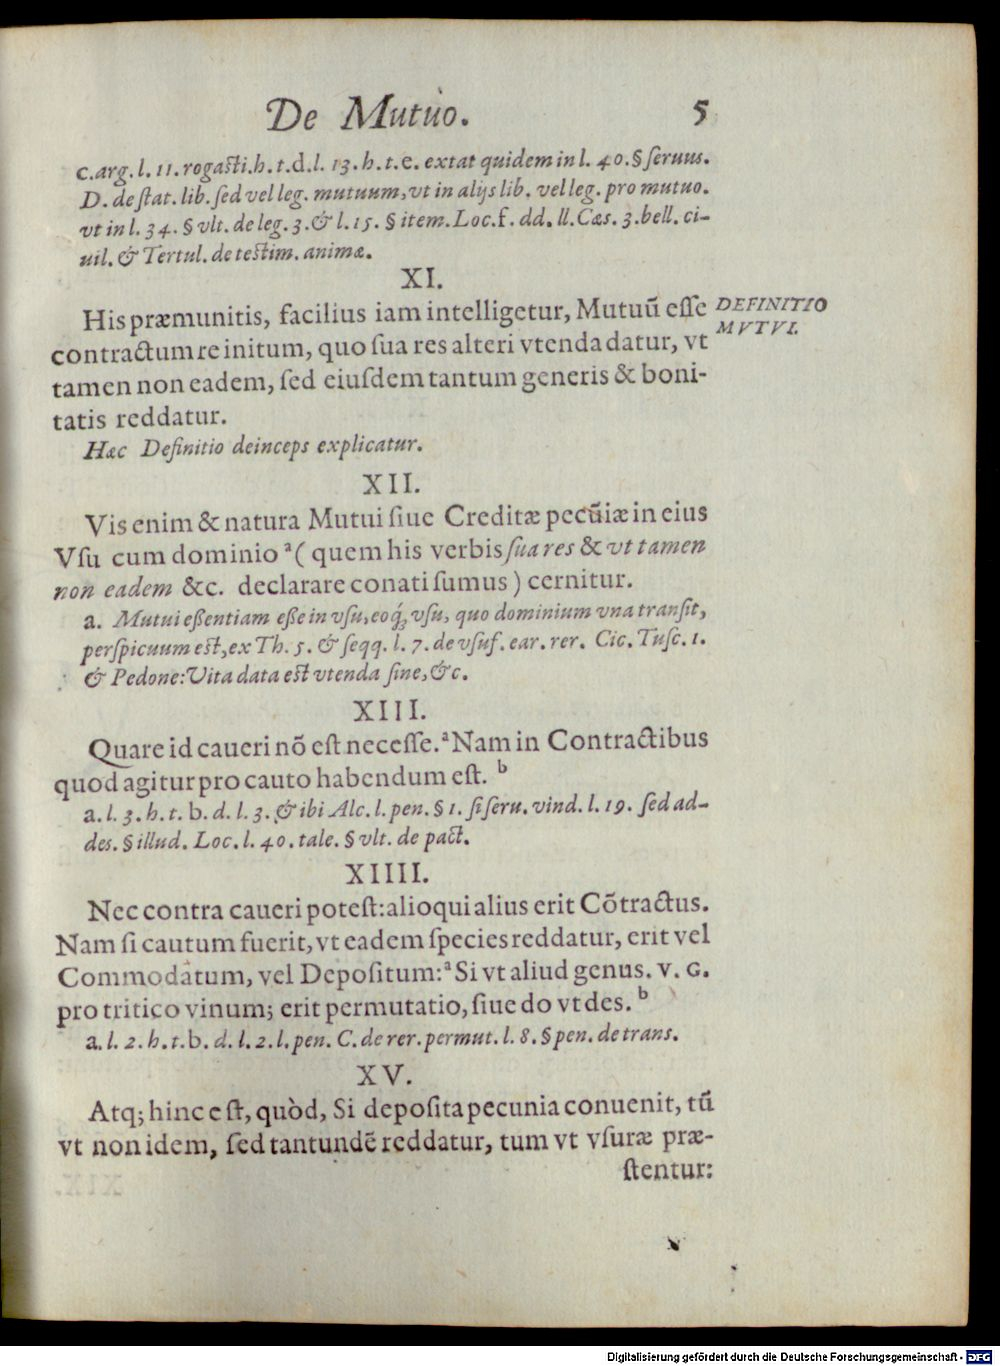 De Mutuo. 5
c. arg. l. 11. rogasti. h. t. d. l. 13. h. t. e. extat quidem in l. 40. § seruus.
D. de stat. lib. sed vel leg. mutuum, vt in alijs lib. vel leg. pro mutuo.
vt in l. 34. § vlt. de leg. 3. & l. 15. § item. Loc. f. dd. ll. Cæs. 3. bell. ci-
uil. & Tertul. de testim. animæ.
XI.
His præmunitis, facilius iam intelligetur, Mutuũ esse
DEFINITIO
MVTVI.
contractum re initum, quo sua res alteri vtenda datur, vt
tamen non eadem, sed eiusdem tantum generis & boni-
tatis reddatur.
Hæc Definitio deinceps explicatur.
XII.
Vis enim & natura Mutui siue Creditæ pecũiæ in eius
Vsu cum dominio a ( quem his verbis sua res & vt tamen
non eadem &c. declarare conati sumus ) cernitur.
a. Mutui eßentiam eße in vsu, eoq́ vsu, quo dominium vna transit,
perspicuum est, ex Th. 5. & seqq. l. 7. de vsuf. ear. rer. Cic. Tusc. 1.
& Pedone: Vita data est vtenda sine, &c.
XIII.
Quare id caueri nõ est necesse. a Nam in Contractibus
quod agitur pro cauto habendum est. b
a. l. 3. h. t. b. d. l. 3. & ibi Alc. l. pen. § 1. si seru. vind. l. 19. sed ad-
des. § illud. Loc. l. 40. tale. § vlt. de pact.
XIIII.
Nec contra caueri potest: alioqui alius erit Cõtractus.
Nam si cautum fuerit, vt eadem species reddatur, erit vel
Commodatum, vel Depositum: a Si vt aliud genus. v. G.
pro tritico vinum; erit permutatio, siue do vt des. b
a. l. 2. h. t. b. d. l. 2. l. pen. C. de rer. permut. l. 8. § pen. de trans.
XV.
Atq; hinc est, quòd, Si deposita pecunia conuenit, tũ
vt non idem, sed tantundẽ reddatur, tum vt vsuræ præ-
stentur:
Digitalisierung gefördert durch die Deutsche Forschungsgemeinschaft - DFG